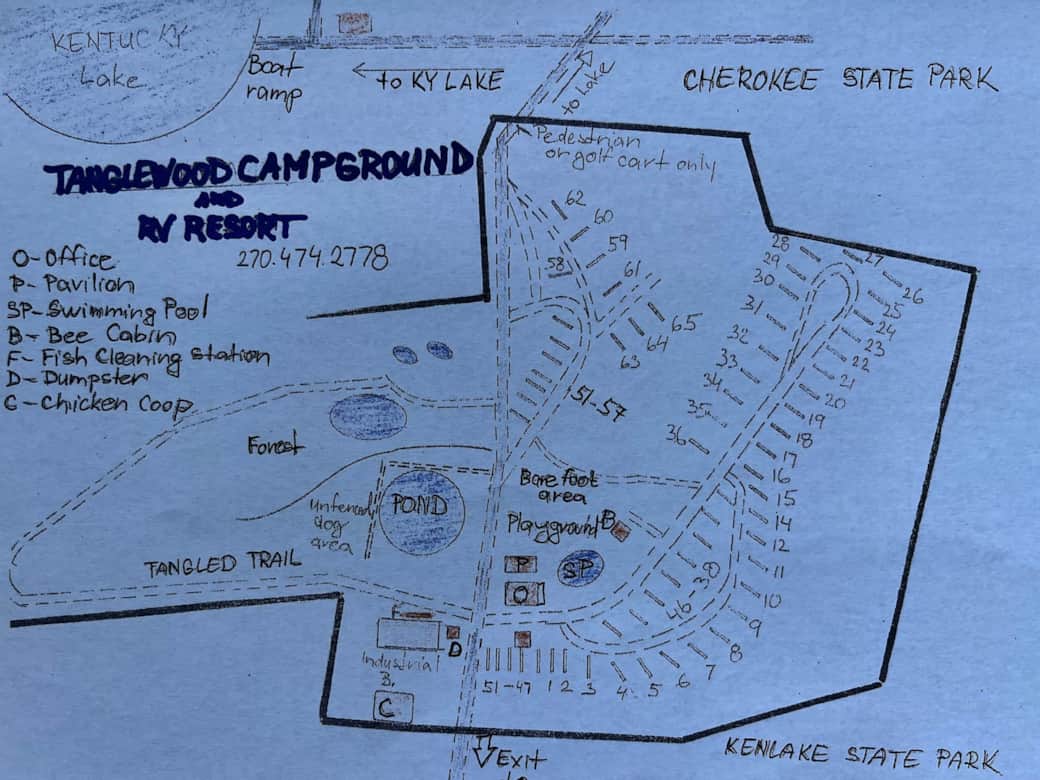 KENTUCKY
Lake
Boat
ramp
to KY LAKE
to Lake
CHEROKEE STATE PARK
Pedestrian
or golf cart only
TANGLEWOOD CAMPGROUND
AND
RV RESORT
270.474.2778
O-Office
P-Pavilion
SP-Swimming Pool
B-Bee Cabin
F-Fish Cleaning Station
D-Dumpster
C-Chicken Coop
62
60
59
58
61
65
64
63
51-57
28
27
29
26
30
25
31
24
23
32
22
33
21
34
20
35
19
36
18
17
16
15
14
12
11
10
9
8
7
6
5
4
3
2
1
51-47
46
38
Forest
unfenced
dog
area
POND
Bare foot
area
Playground
B
P
SP
O
TANGLED TRAIL
F
D
Industrial
B.
C
Exit
to
KENLAKE STATE PARK